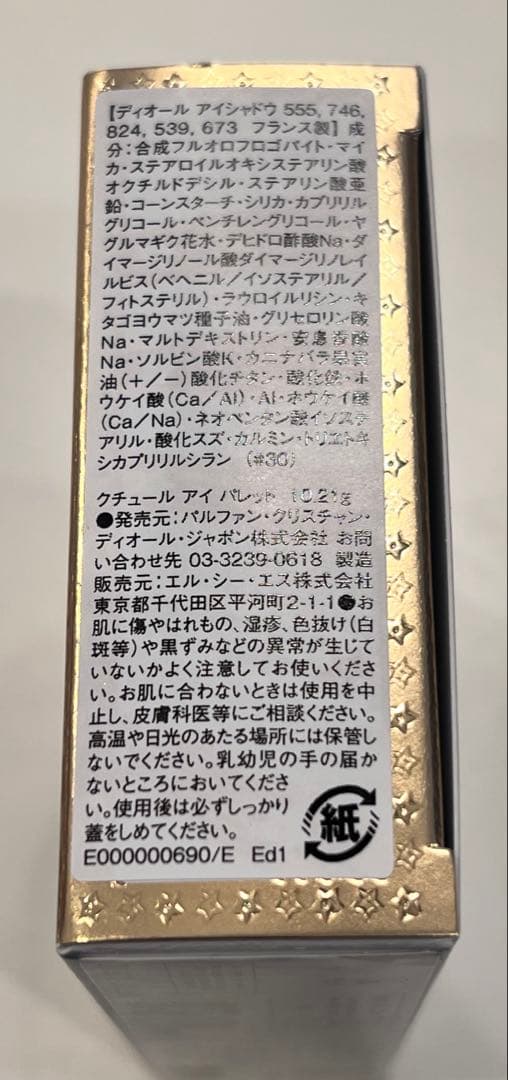 【ディオール アイシャドウ 555, 746,
824, 539, 673 フランス製】成
分：合成フルオロフロゴパイト・マイ
カ・ステアロイルオキシステアリン酸
オクチルドデシル・ステアリン酸亜
鉛・コーンスターチ・シリカ・カプリリル
グリコール・ペンチレングリコール・ヤ
グルマギク花水・デヒドロ酢酸Na・ダ
イマージリノール酸ダイマージリノレイ
ルビス(ベヘニル/イソステアリル/
フィトステリル)・ラウロイルリシン・キ
タゴヨウマツ種子油・グリセロリン酸
Na・マルトデキストリン・安息香酸
Na・ソルビン酸K・カニナバラ果実
油(+/−)酸化チタン・酸化鉄・ホ
ウケイ酸(Ca/Al)・Al・ホウケイ酸
(Ca/Na)・ネオペンタン酸イソステ
アリル・酸化スズ・カルミン・トリエトキ
シカプリリルシラン (#30)
クチュール アイ パレット 10.21g
●発売元：パルファン・クリスチャン・
ディオール・ジャポン株式会社 お問
い合わせ先 03-3239-0618 製造
販売元：エル・シー・エス株式会社
東京都千代田区平河町2-1-1●お
肌に傷やはれもの、湿疹、色抜け(白
斑等)や黒ずみなどの異常が生じて
いないかよく注意してお使いくださ
い。お肌に合わないときは使用を中
止し、皮膚科医等にご相談ください。
高温や日光のあたる場所には保管し
ないでください。乳幼児の手の届か
ないところにおいてくださ
い。使用後は必ずしっかり
蓋をしめてください。
紙
E000000690/E Ed1